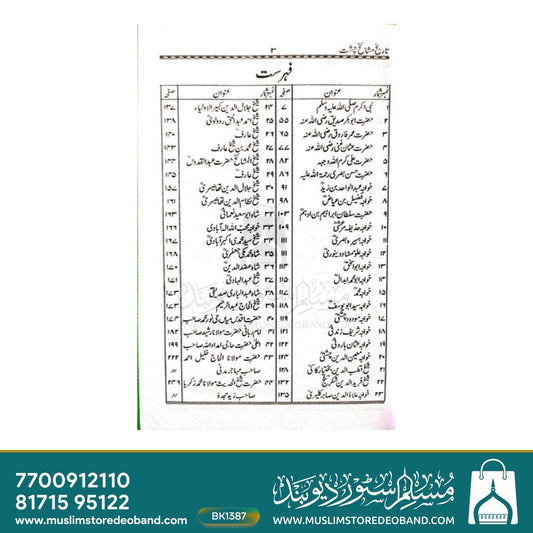 تاریخ مشائخ چشت
۳
فہرست
نمبر شمار عنوان صفحہ نمبر شمار عنوان صفحہ
۱ نبی اکرم صلی اللہ علیہ وسلم ۷ ۲۴ شیخ جلال الدین کبیر الاولیاء ۱۳۷
۲ حضرت ابوبکر صدیق رضی اللہ عنہ ۵۵ ۲۵ شیخ احمد عبدالحق ردولوی ۱۳۸
۳ حضرت عمر فاروق رضی اللہ عنہ ۶۵ ۲۶ شیخ عارف ۱۴۰
۴ حضرت عثمان غنی رضی اللہ عنہ ۷۷ ۲۷ شیخ محمد بن شیخ عارف
۵ حضرت علی کرم اللہ وجہہ ۸۲ ۲۸ شیخ المشائخ حضرت عبدالقدوس ۱۴۴
۶ حضرت حسن بصری رحمۃ اللہ علیہ ۸۶ ۲۹ شیخ عارف
۷ خواجہ عبدالواحد بن زید ۹۱ ۳۰ شیخ جلال الدین تھانیسری ۱۵۷
۸ خواجہ فضیل بن عیاض ۹۷ ۳۱ شیخ نظام الدین تھانیسری ۱۶۱
۹ حضرت سلطان ابراہیم بن ادہم ۱۰۳ ۳۲ شاہ ابوسعید نعمانی ۱۶۳
۱۰ خواجہ حذیفہ مرعشی ۱۰۹ ۳۳ خواجہ محب اللہ الہ آبادی ۱۶۶
۱۱ خواجہ ہبیرہ بصری ۱۱۱ ۳۴ شیخ سید محمدی اکبرآبادی ۱۶۷
۱۲ خواجہ علو ممشاد دینوری ۱۱۱ ۳۵ شاہ محمد مکی جعفری ۱۶۸
۱۳ خواجہ ابواسحٰق ۱۱۴ ۳۶ شاہ عضدالدین ۱۷۰
۱۴ خواجہ ابو محمد ابدال ۳۷ شیخ عبدالہادی ۱۷۱
۱۵ خواجہ محمد ۱۱۷ ۳۸ شاہ عبدالباری صدیقی ۱۷۳
۱۶ خواجہ سید ابو یوسف ۳۹ شیخ الحاج عبدالرحیم ۱۷۳
۱۷ خواجہ مودود چشتی ۱۱۹ ۴۰ حضرت اقدس میاں جی نور محمد صاحب ۱۷۴
۱۸ خواجہ شریف زندنی ۱۲۱ ۴۴ امام ربانی حضرت مولانا رشید صاحب ۱۸۲
۱۹ خواجہ عثمان ہارونی ۱۲۲ اعلیٰ حضرت حاجی امداد اللہ صاحب ۱۹۹
۲۰ خواجہ معین الدین چشتی حضرت مولانا الحاج خلیل احمد ۲۲۲
۲۱ شیخ قطب الدین بختیار کاکی ۱۲۸ صاحب مہاجر مدنی //
۲۲ شیخ فرید الدین شکر گنج ۱۳۲ ۴۴ حضرت شیخ الحدیث مولانا محمد زکریا ۲۴۶
۲۳ خواجہ علاؤ الدین صابر کلیری ۱۳۵ صاحب زید مجدہ //
مسلم اسٹور دیوبند
7700912110
81715 95122
www.muslimstoredeoband.com
BK1387
مسلم اسٹور دیوبند
WWW.MUSLIMSTOREDEOBAND.COM